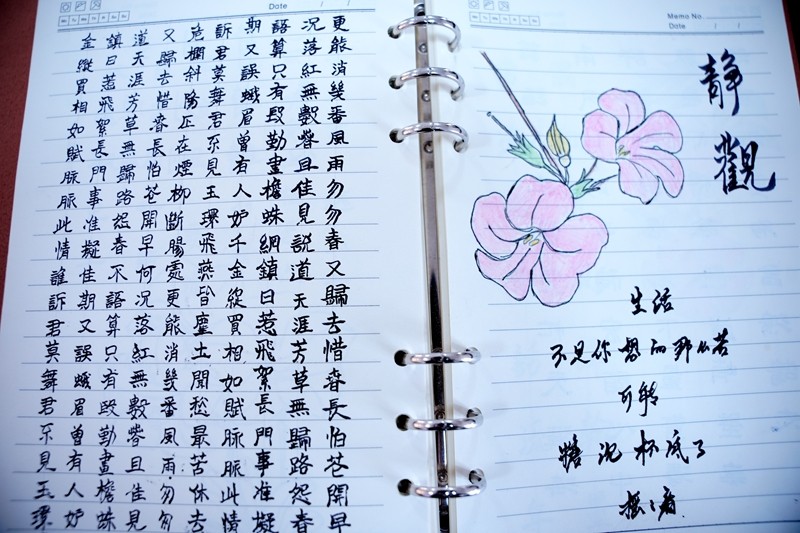 Date / /
更能消幾番風雨匆匆春又歸去惜春長怕花開早
況落紅無數春且住見說道天涯芳草無歸路怨春
語算只有殷勤畫檐蛛網鎮日惹飛絮長門事准擬
期又誤蛾眉曾有人妒千金縱買相如賦脈脈此情
訴君莫舞君不見玉環飛燕皆塵土閒愁最苦休去
危欄斜陽正在煙柳斷腸處更能消幾番風雨匆匆
又歸去惜春長怕花開早何況落紅無數春且住見
道天涯芳草無歸路怨春不語算只有殷勤畫檐蛛
鎮日惹飛絮長門事准擬佳期又誤蛾眉曾有人妒
金縱買相如賦脈脈此情誰訴君莫舞君不見玉環
Memo No.
Date / /
靜觀
生活
不是你想的那么苦
可能
糖沉杯底了
摇摇看